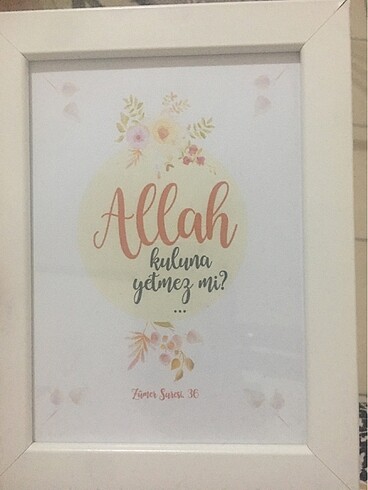 Allah
kuluna
yetmez mi?
...
Zümer Suresi, 36